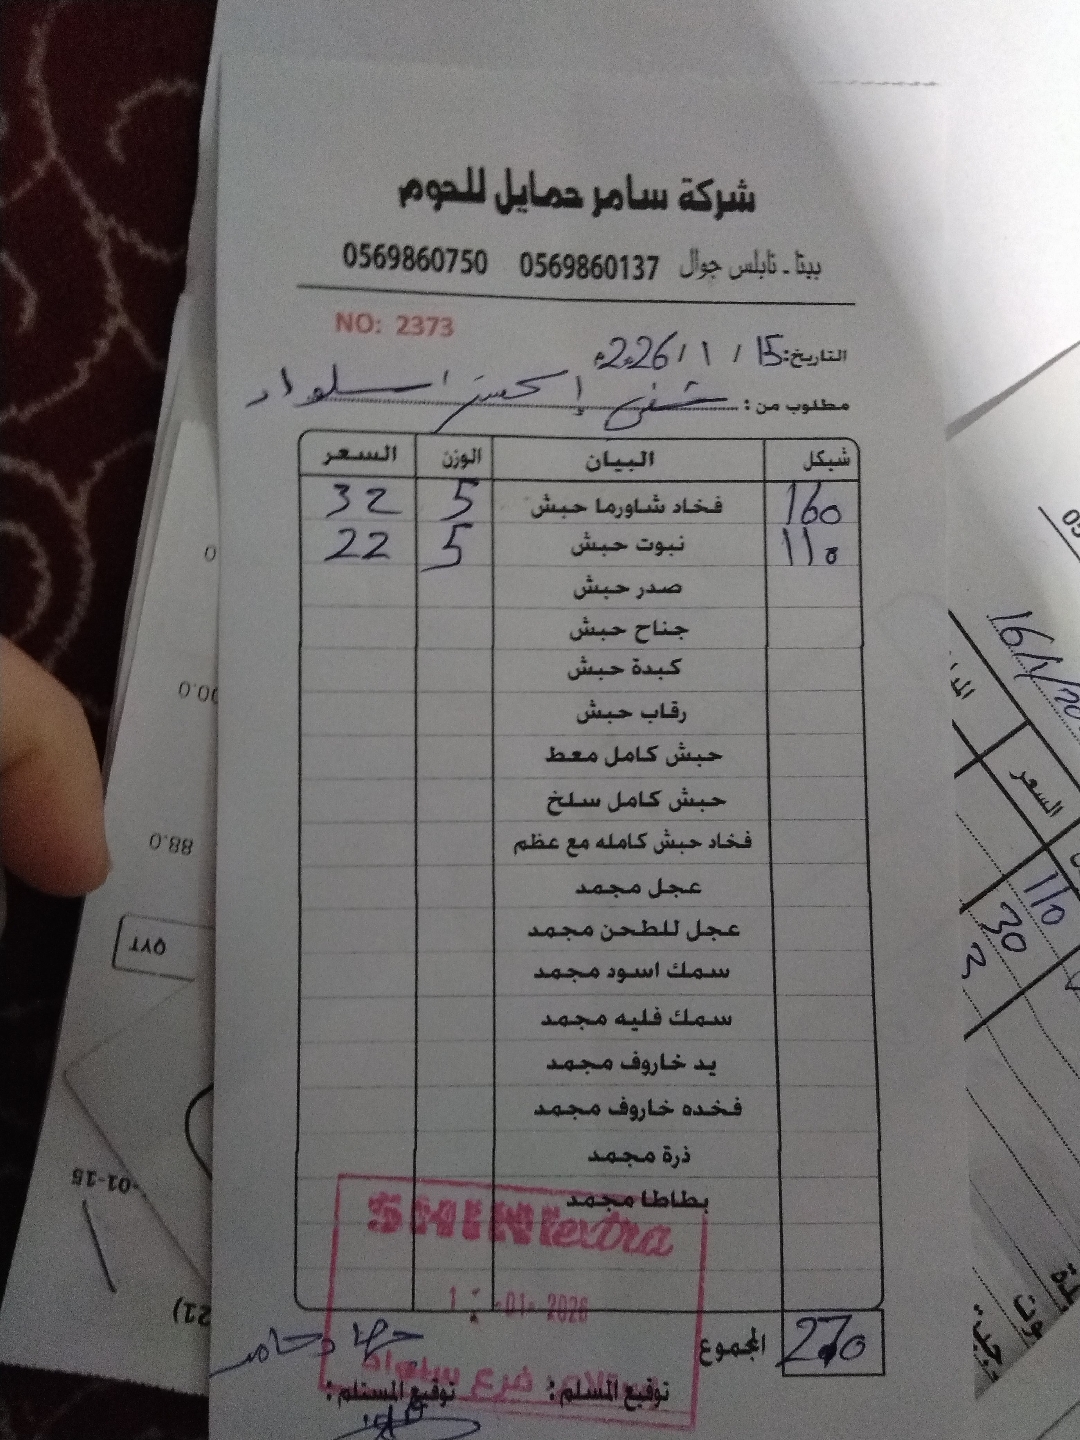 شركة سامر حمايل للحوم
بيتا - نابلس جوال 0569860137 0569860750
NO: 2373
التاريخ: 15 / 1 / 2026
مطلوب من: سلواد
شيكل البيان الوزن السعر
160 فخاد شاورما حبش 5 32
110 نبوت حبش 5 22
صدر حبش
جناح حبش
كبدة حبش
رقاب حبش
حبش كامل معط
حبش كامل سلخ
فخاد حبش كامله مع عظم
عجل مجمد
عجل للطحن مجمد
سمك اسود مجمد
سمك فليه مجمد
يد خاروف مجمد
فخده خاروف مجمد
ذرة مجمد
بطاطا مجمد
extra
-01- 2026
فرع سلواد
المجموع 270
توقيع المسلم: توقيع المستلم:
88.0
QYT
-01-15
16/1/20
السعر
110
30